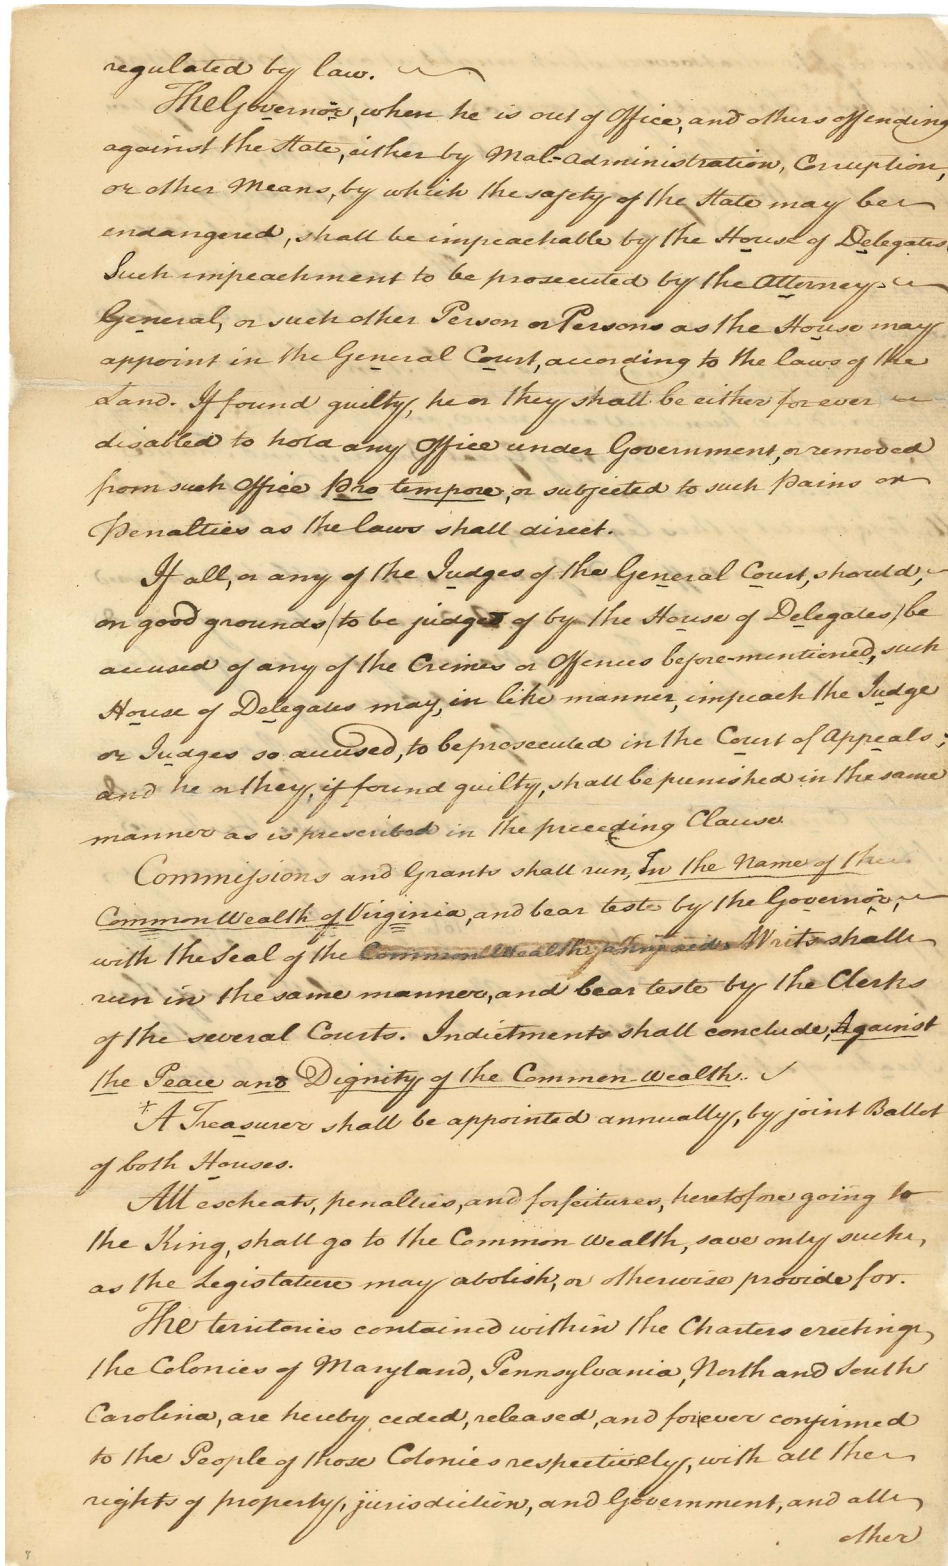 regulated by law.
The Governor, when he is out of Office, and others offending
against the State, either by Mal-administration, Corruption,
or other Means, by which the safety of the State may be
endangered, shall be impeachable by the House of Delegates.
Such impeachment to be prosecuted by the Attorney
General, or such other Person or Persons as the House may
appoint in the General Court, according to the laws of the
Land. If found guilty, he or they shall be either for ever
disabled to hold any Office under Government, or removed
from such Office Pro tempore, or subjected to such Pains or
Penalties as the laws shall direct.
If all, or any of the Judges of the General Court, should,
on good grounds (to be judged of by the House of Delegates) be
accused of any of the Crimes or Offences before-mentioned, such
House of Delegates may, in like manner, impeach the Judge
or Judges so accused, to be prosecuted in the Court of Appeals;
and he or they, if found guilty, shall be punished in the same
manner as is prescribed in the preceding Clause.
Commissions and Grants shall run, In the Name of the
Common Wealth of Virginia, and bear teste by the Governor,
with the Seal of the Common Wealth annexed. Writs shall
run in the same manner, and bear teste by the Clerks
of the several Courts. Indictments shall conclude, Against
the Peace and Dignity of the Common-wealth.
+ A Treasurer shall be appointed annually, by joint Ballot
of both Houses.
All escheats, penalties, and forfeitures, heretofore going to
the King, shall go to the Common Wealth, save only such,
as the Legislature may abolish, or otherwise provide for.
The territories contained within the Charters erecting
the Colonies of Maryland, Pennsylvania, North and South
Carolina, are hereby ceded, released, and forever confirmed
to the People of those Colonies respectively, with all the
rights of property, jurisdiction, and Government, and all
other